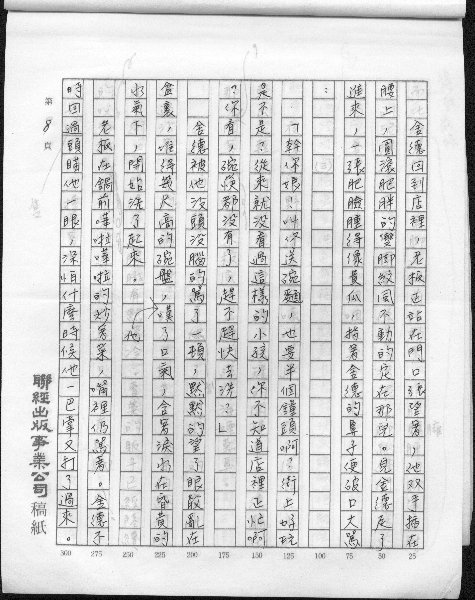 金德回到店裡，老板正站在門口張望著，他双手插在
腰上，圓滾肥胖的雙腳紋風不動的定在那兒。見金德走了
進來，一張肥臉腫得像黃瓜，指著金德的鼻子便破口大罵
：
「幹你娘？叫你送碗麵，也要半個鐘頭啊？街上好玩
是不是？從來就没看過這樣的小孩，你不知道店裡正忙啊
？你看，碗筷都没有了，趕不趕快去洗？」
金德被他没頭没腦的罵了一頓，默默的望了眼散亂在
盒裏，堆得幾尺高的碗盤，嘆了口氣，含著淚水在昏黄的
水氣下，開始洗了起來。
老板在鍋前嘩啦嘩啦的炒著菜，嘴裡仍罵著。金德不
時回過頭瞄他一眼，深怕什麼時候他一巴掌又打了過來。
第 8 頁
聯經出版事業公司稿紙
25
50
75
100
125
150
175
200
225
250
275
300